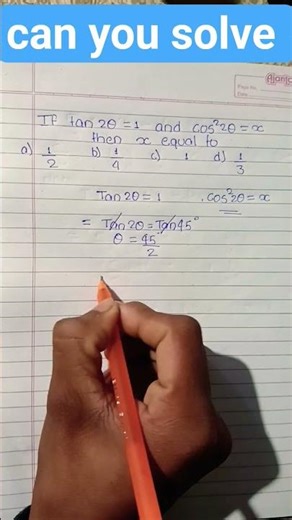 can you solve
Ajanta
Page No.
Date
If tan 2θ = 1 and cos²2θ = x
then x equal to
a) 1/2 b) 1/4 c) 1 d) 1/3
Tan 2θ = 1 . cos²2θ = x
= Tan 2θ = Tan 45°
θ = 45°/2